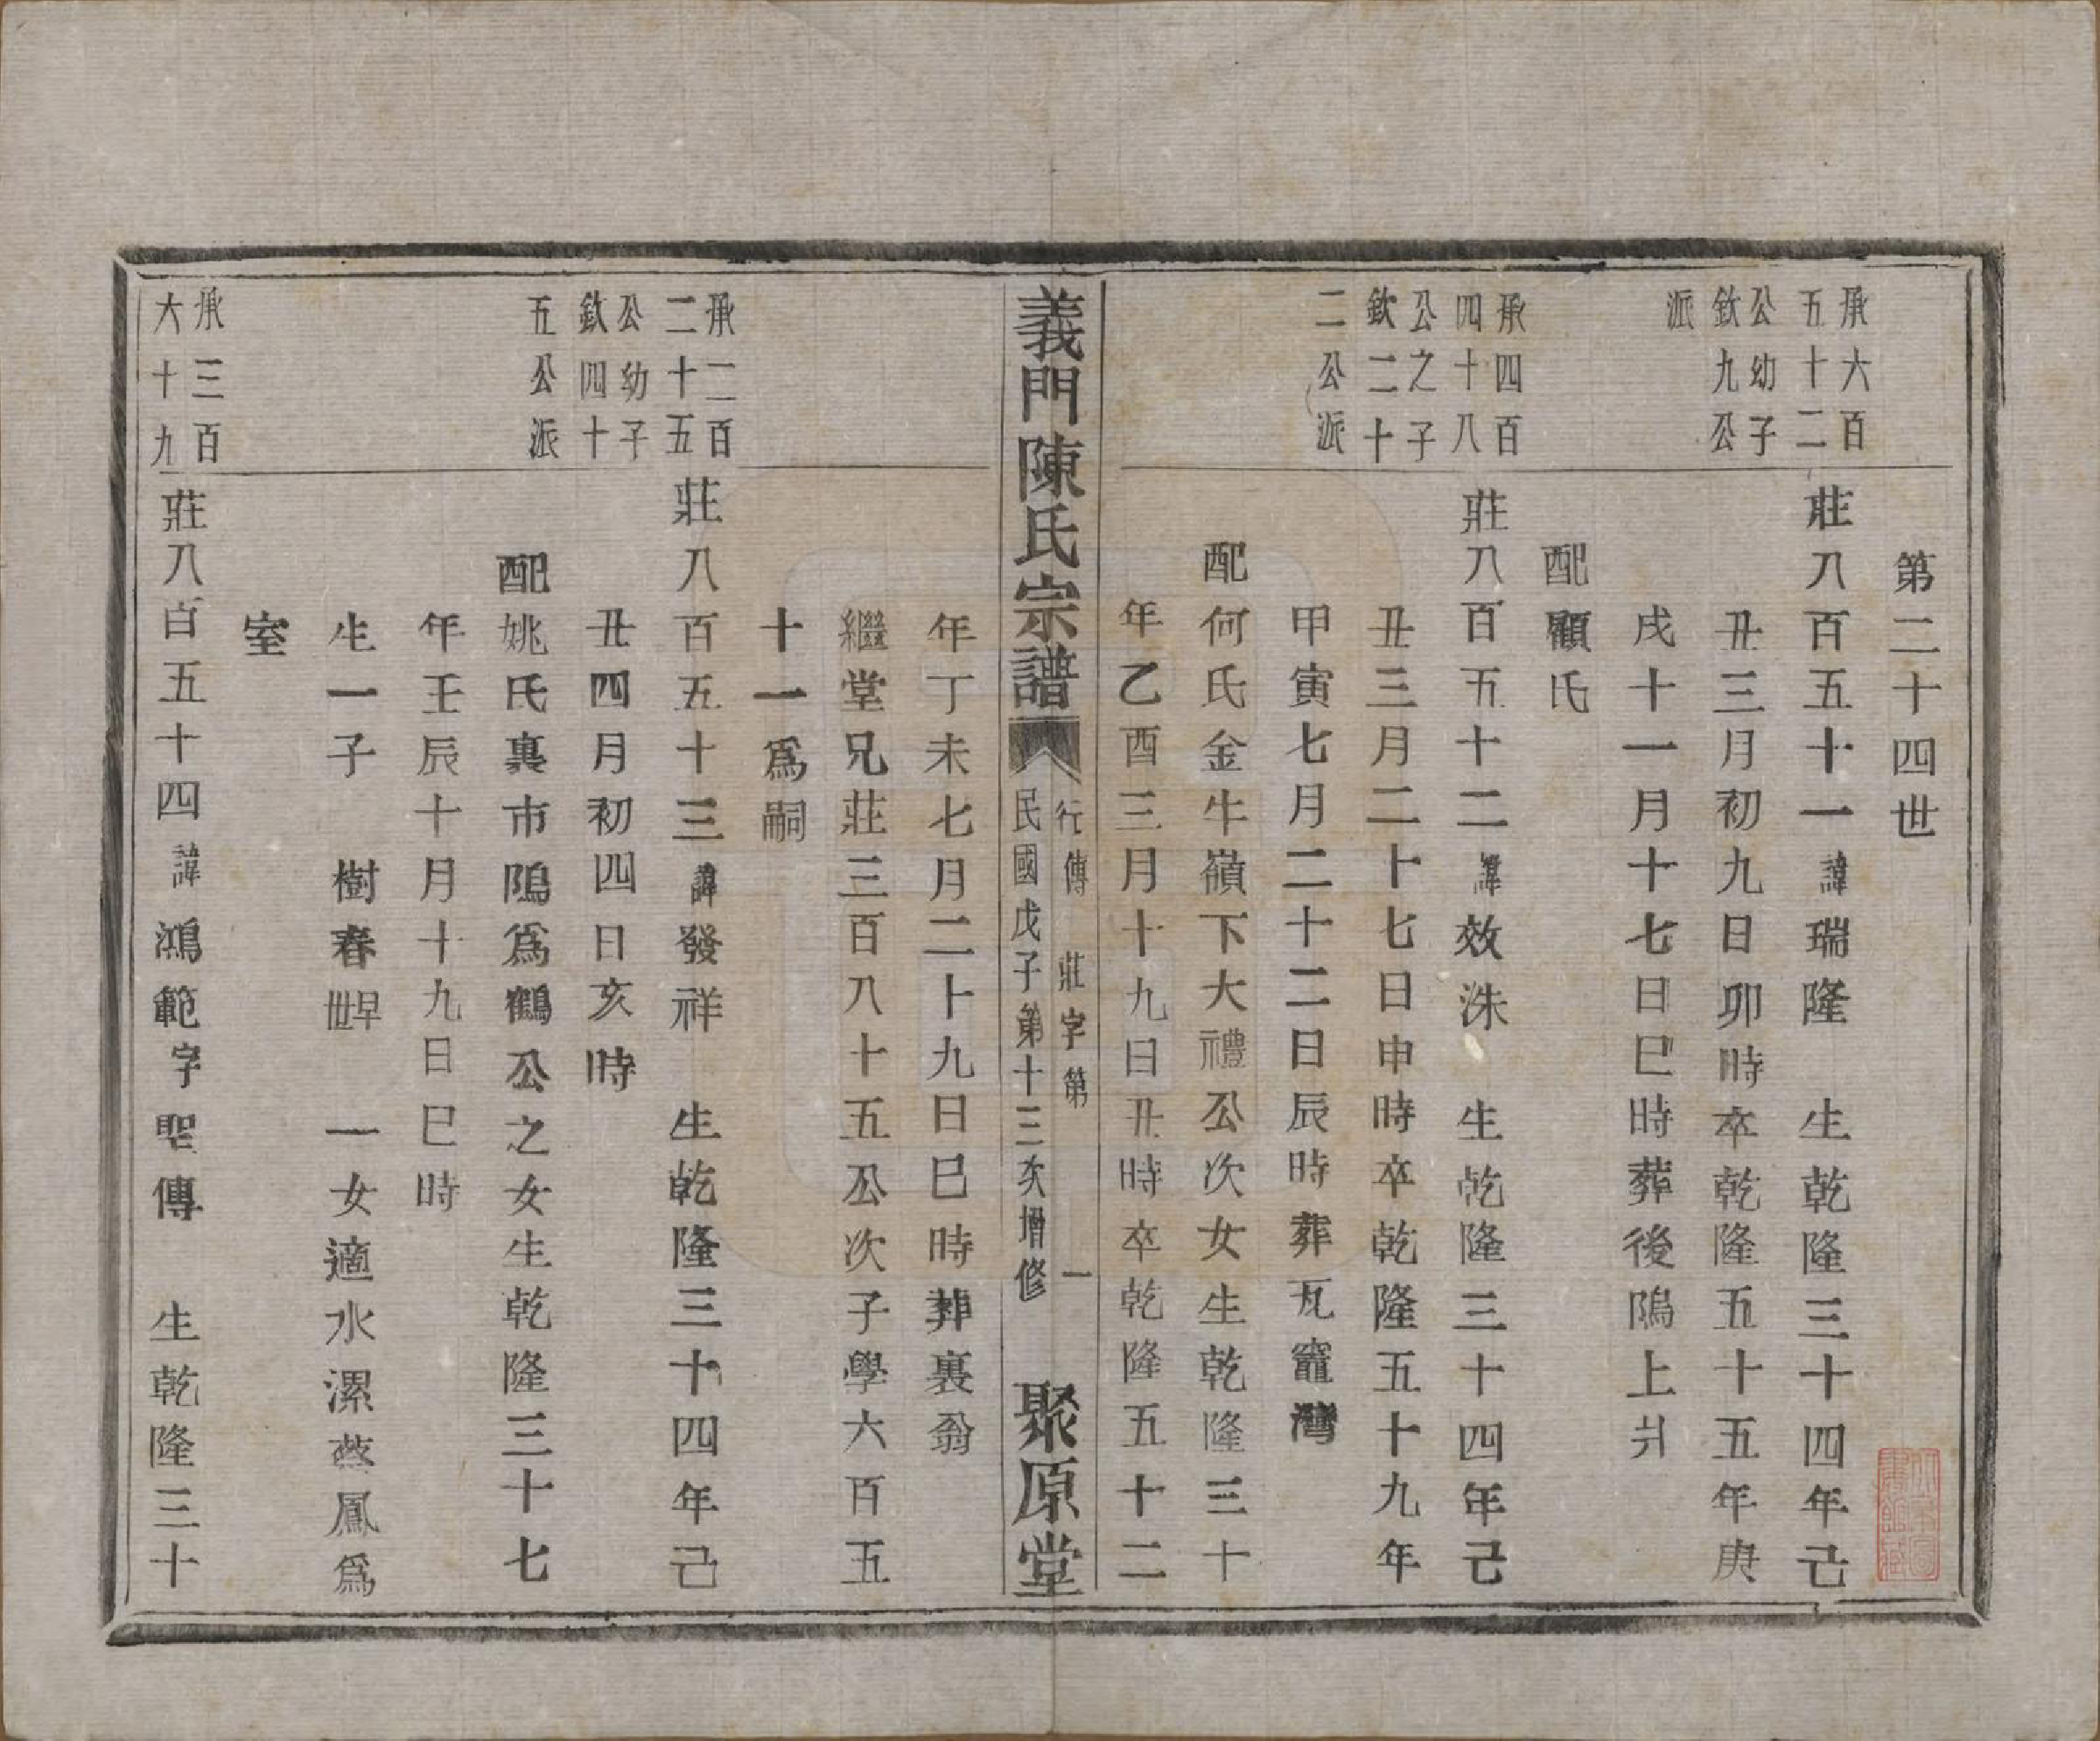 第二十四世
承六百
五十二
公幼子
欽九公
派
莊八百五十一諱瑞隆 生乾隆三十四年己
丑三月初九日卯時卒乾隆五十五年庚
戌十一月十七日巳時葬後隖上爿
配顧氏
承四百
四十八
公之子
欽二十
二公派
莊八百五十二諱效洙 生乾隆三十四年己
丑三月二十七日申時卒乾隆五十九年
甲寅七月二十二日辰時葬瓦竈灣
配何氏金牛嶺下大禮公次女生乾隆三十
年乙酉三月十九日丑時卒乾隆五十二
義門陳氏宗譜
行傳 莊字第 一
民國戊子第十三次增修
聚原堂
年丁未七月二十九日巳時葬裏翁
繼堂兄莊三百八十五公次子學六百五
十一爲嗣
承二百
二十五
公幼子
欽四十
五公派
莊八百五十三諱發祥 生乾隆三十四年己
丑四月初四日亥時
配姚氏裏市隖爲鶴公之女生乾隆三十七
年壬辰十月十九日巳時
生一子 樹春早世 一女適水漯蔡鳳爲
室
承三百
六十九
莊八百五十四諱鴻範字聖傳 生乾隆三十